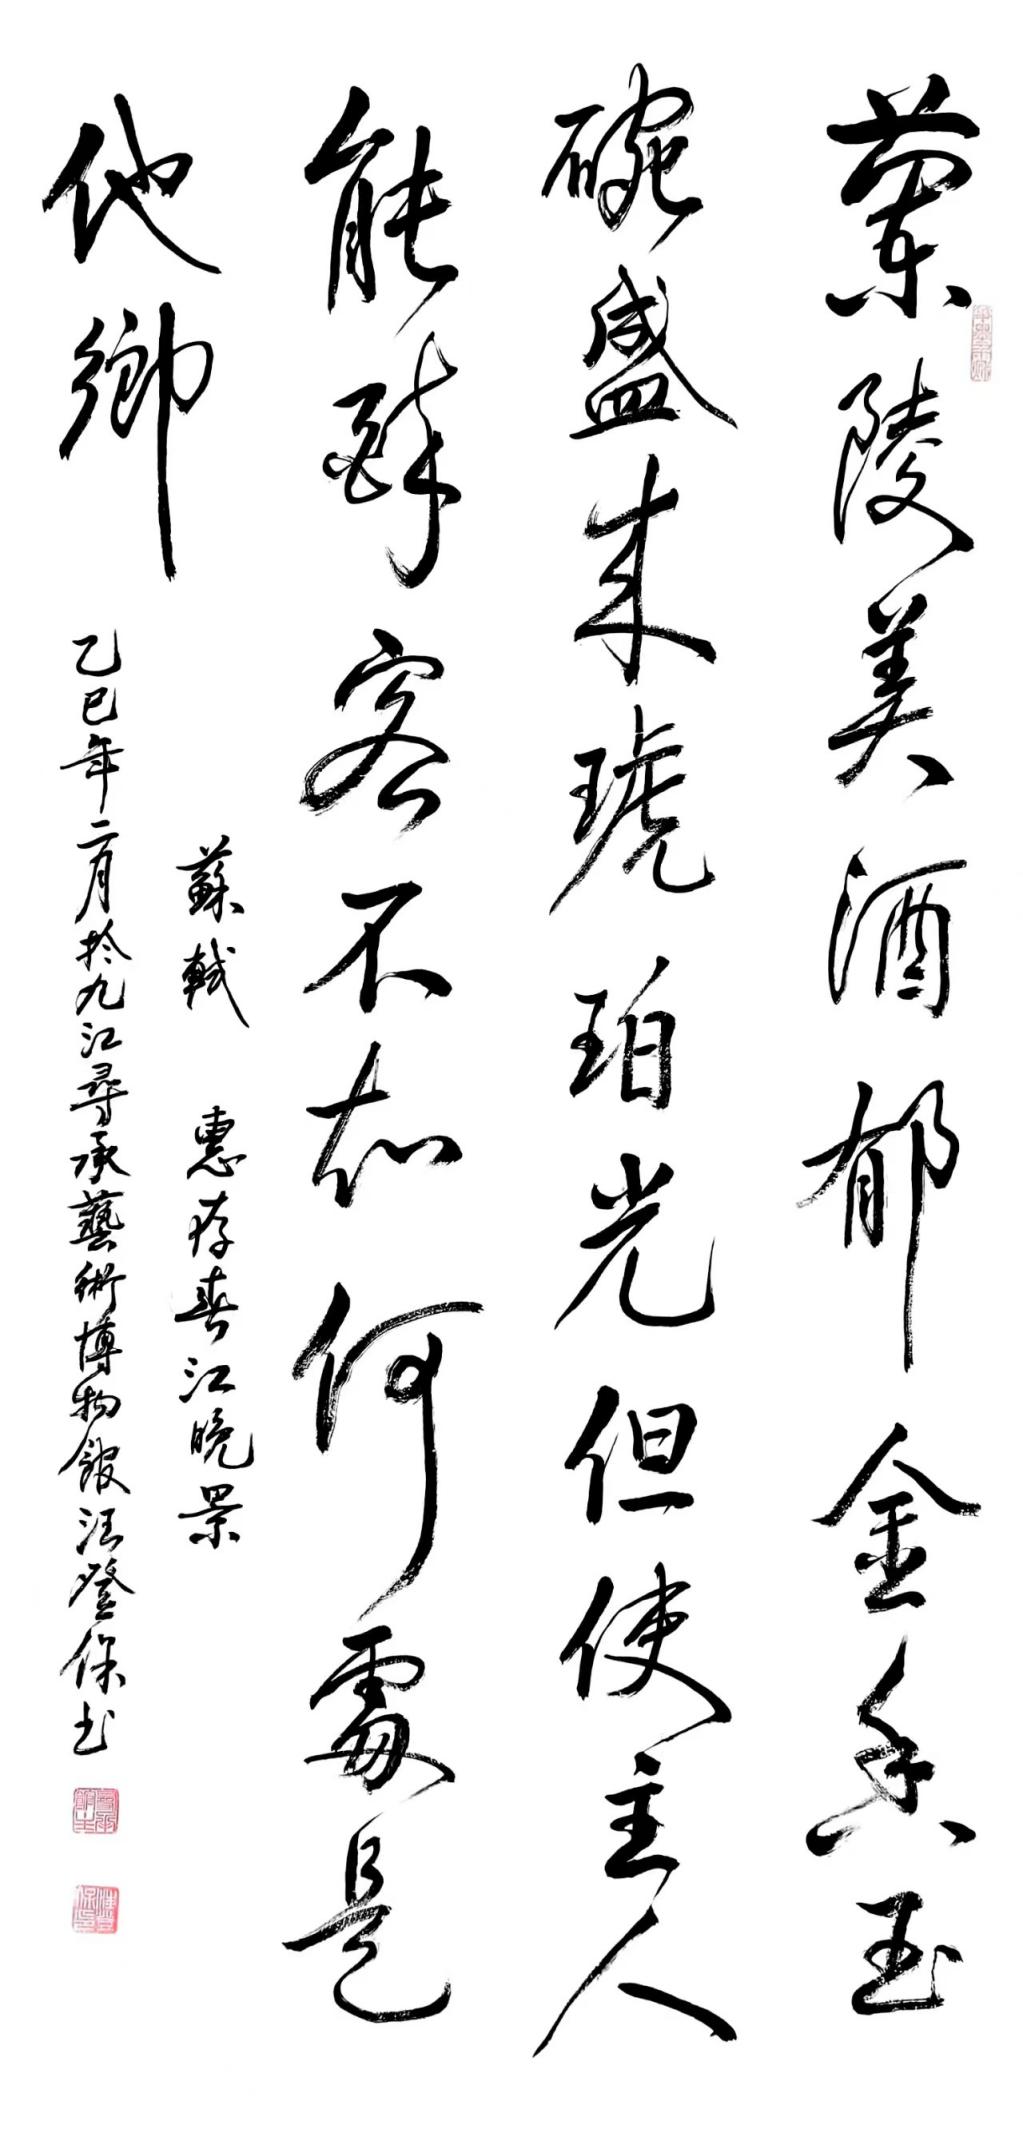 蘭陵美酒郁金香玉
碗盛来琥珀光但使主人
能醉客不知何處是
他鄉
蘇軾 惠存春江晚景
乙巳年二月於九江尋承藝術博物館汪登保书